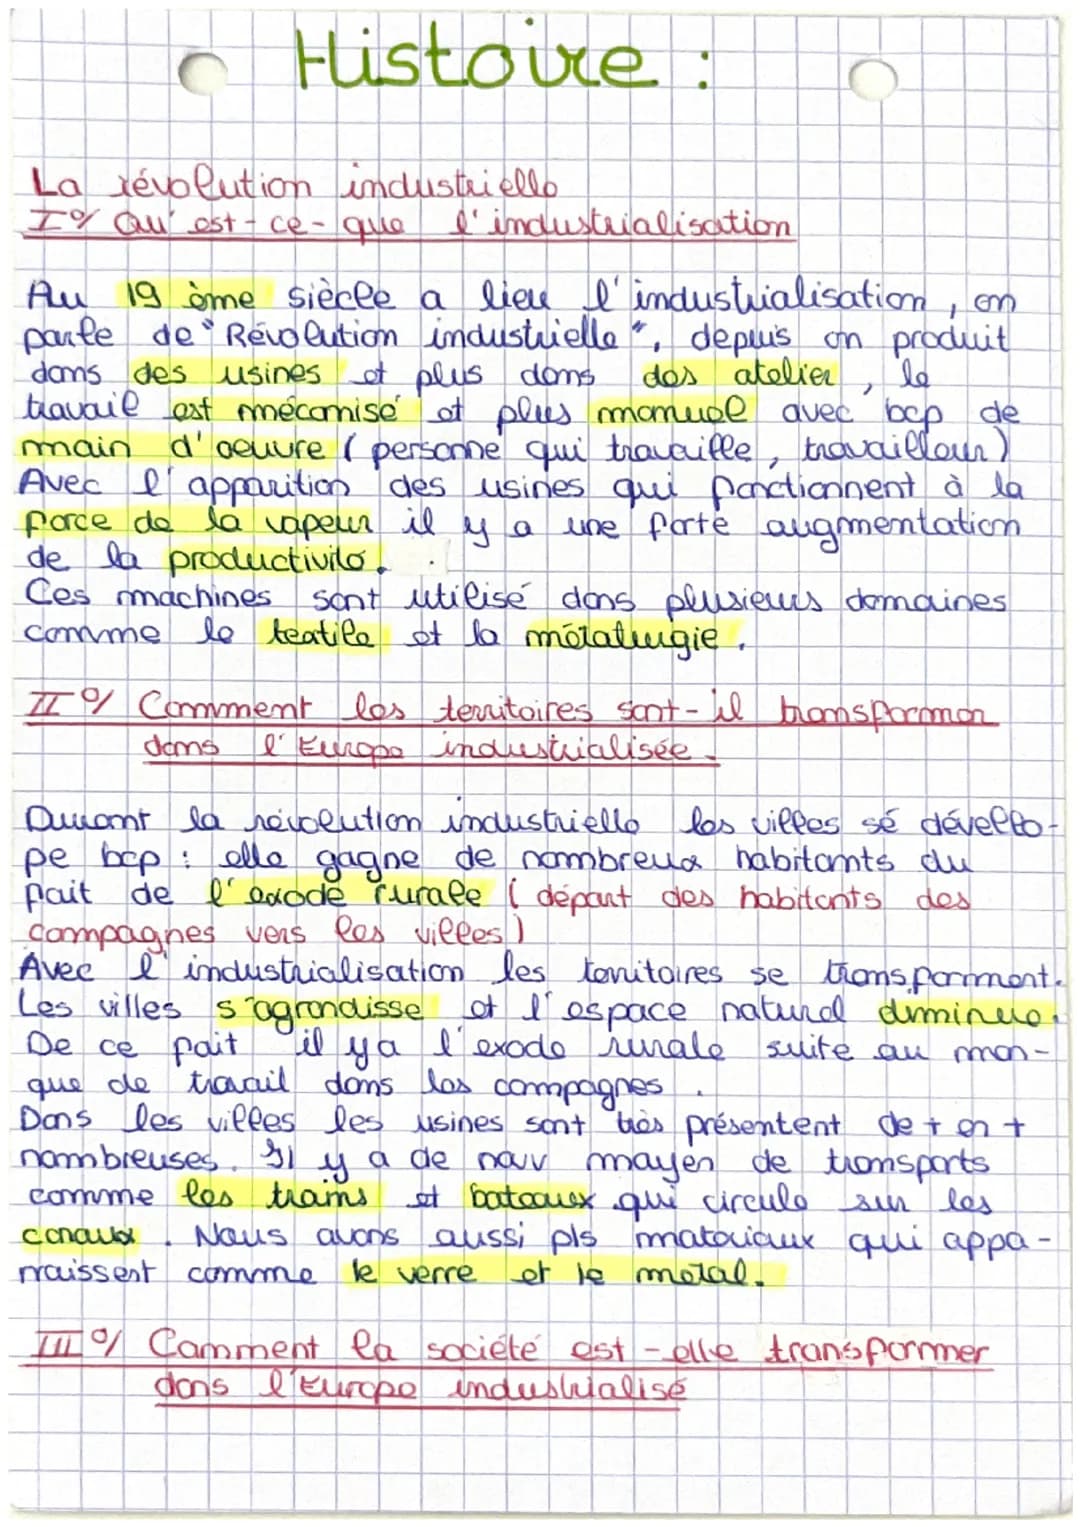 Histoire :
La révolution industrielle
I°/ Qu'est-ce-que l'industrialisation
Au 19 ème siècle a lieu l'industrialisation, on
parle de "Révolution industrielle", depuis on produit
dans des usines et plus dans des atelier, le
travail est mécanisé et plus manuel avec bcp de
main d'oeuvre ( personne qui travaille, travailleur)
Avec l'apparition des usines qui fonctionnent à la
force de la vapeur il y a une forte augmentation
de la productivité.
Ces machines sont utilisé dans plusieurs domaines
comme le textile et la métalurgie.
II°/ Comment les territoires sont-il transformer
dans l'Europe industrialisée.
Durant la révolution industrielle les villes sé dévello-
pe bcp : elle gagne de nombreux habitants du
fait de l'exode rurale ( départ des habitants des
campagnes vers les villes)
Avec l'industrialisation les territoires se transforment.
Les villes s'agrandisse et l'espace naturel diminue.
De ce fait il y a l'exode rurale suite au man-
que de travail dans les campagnes.
Dans les villes les usines sont très présentent de + en +
nombreuses. Il y a de nouv moyen de transports
comme les trains et bateaux qui circule sur les
canaux. Nous avons aussi pls matériaux qui appa-
rraissent comme le verre et le métal.
III°/ Comment la société est-elle transformer
dans l'Europe industrialisé